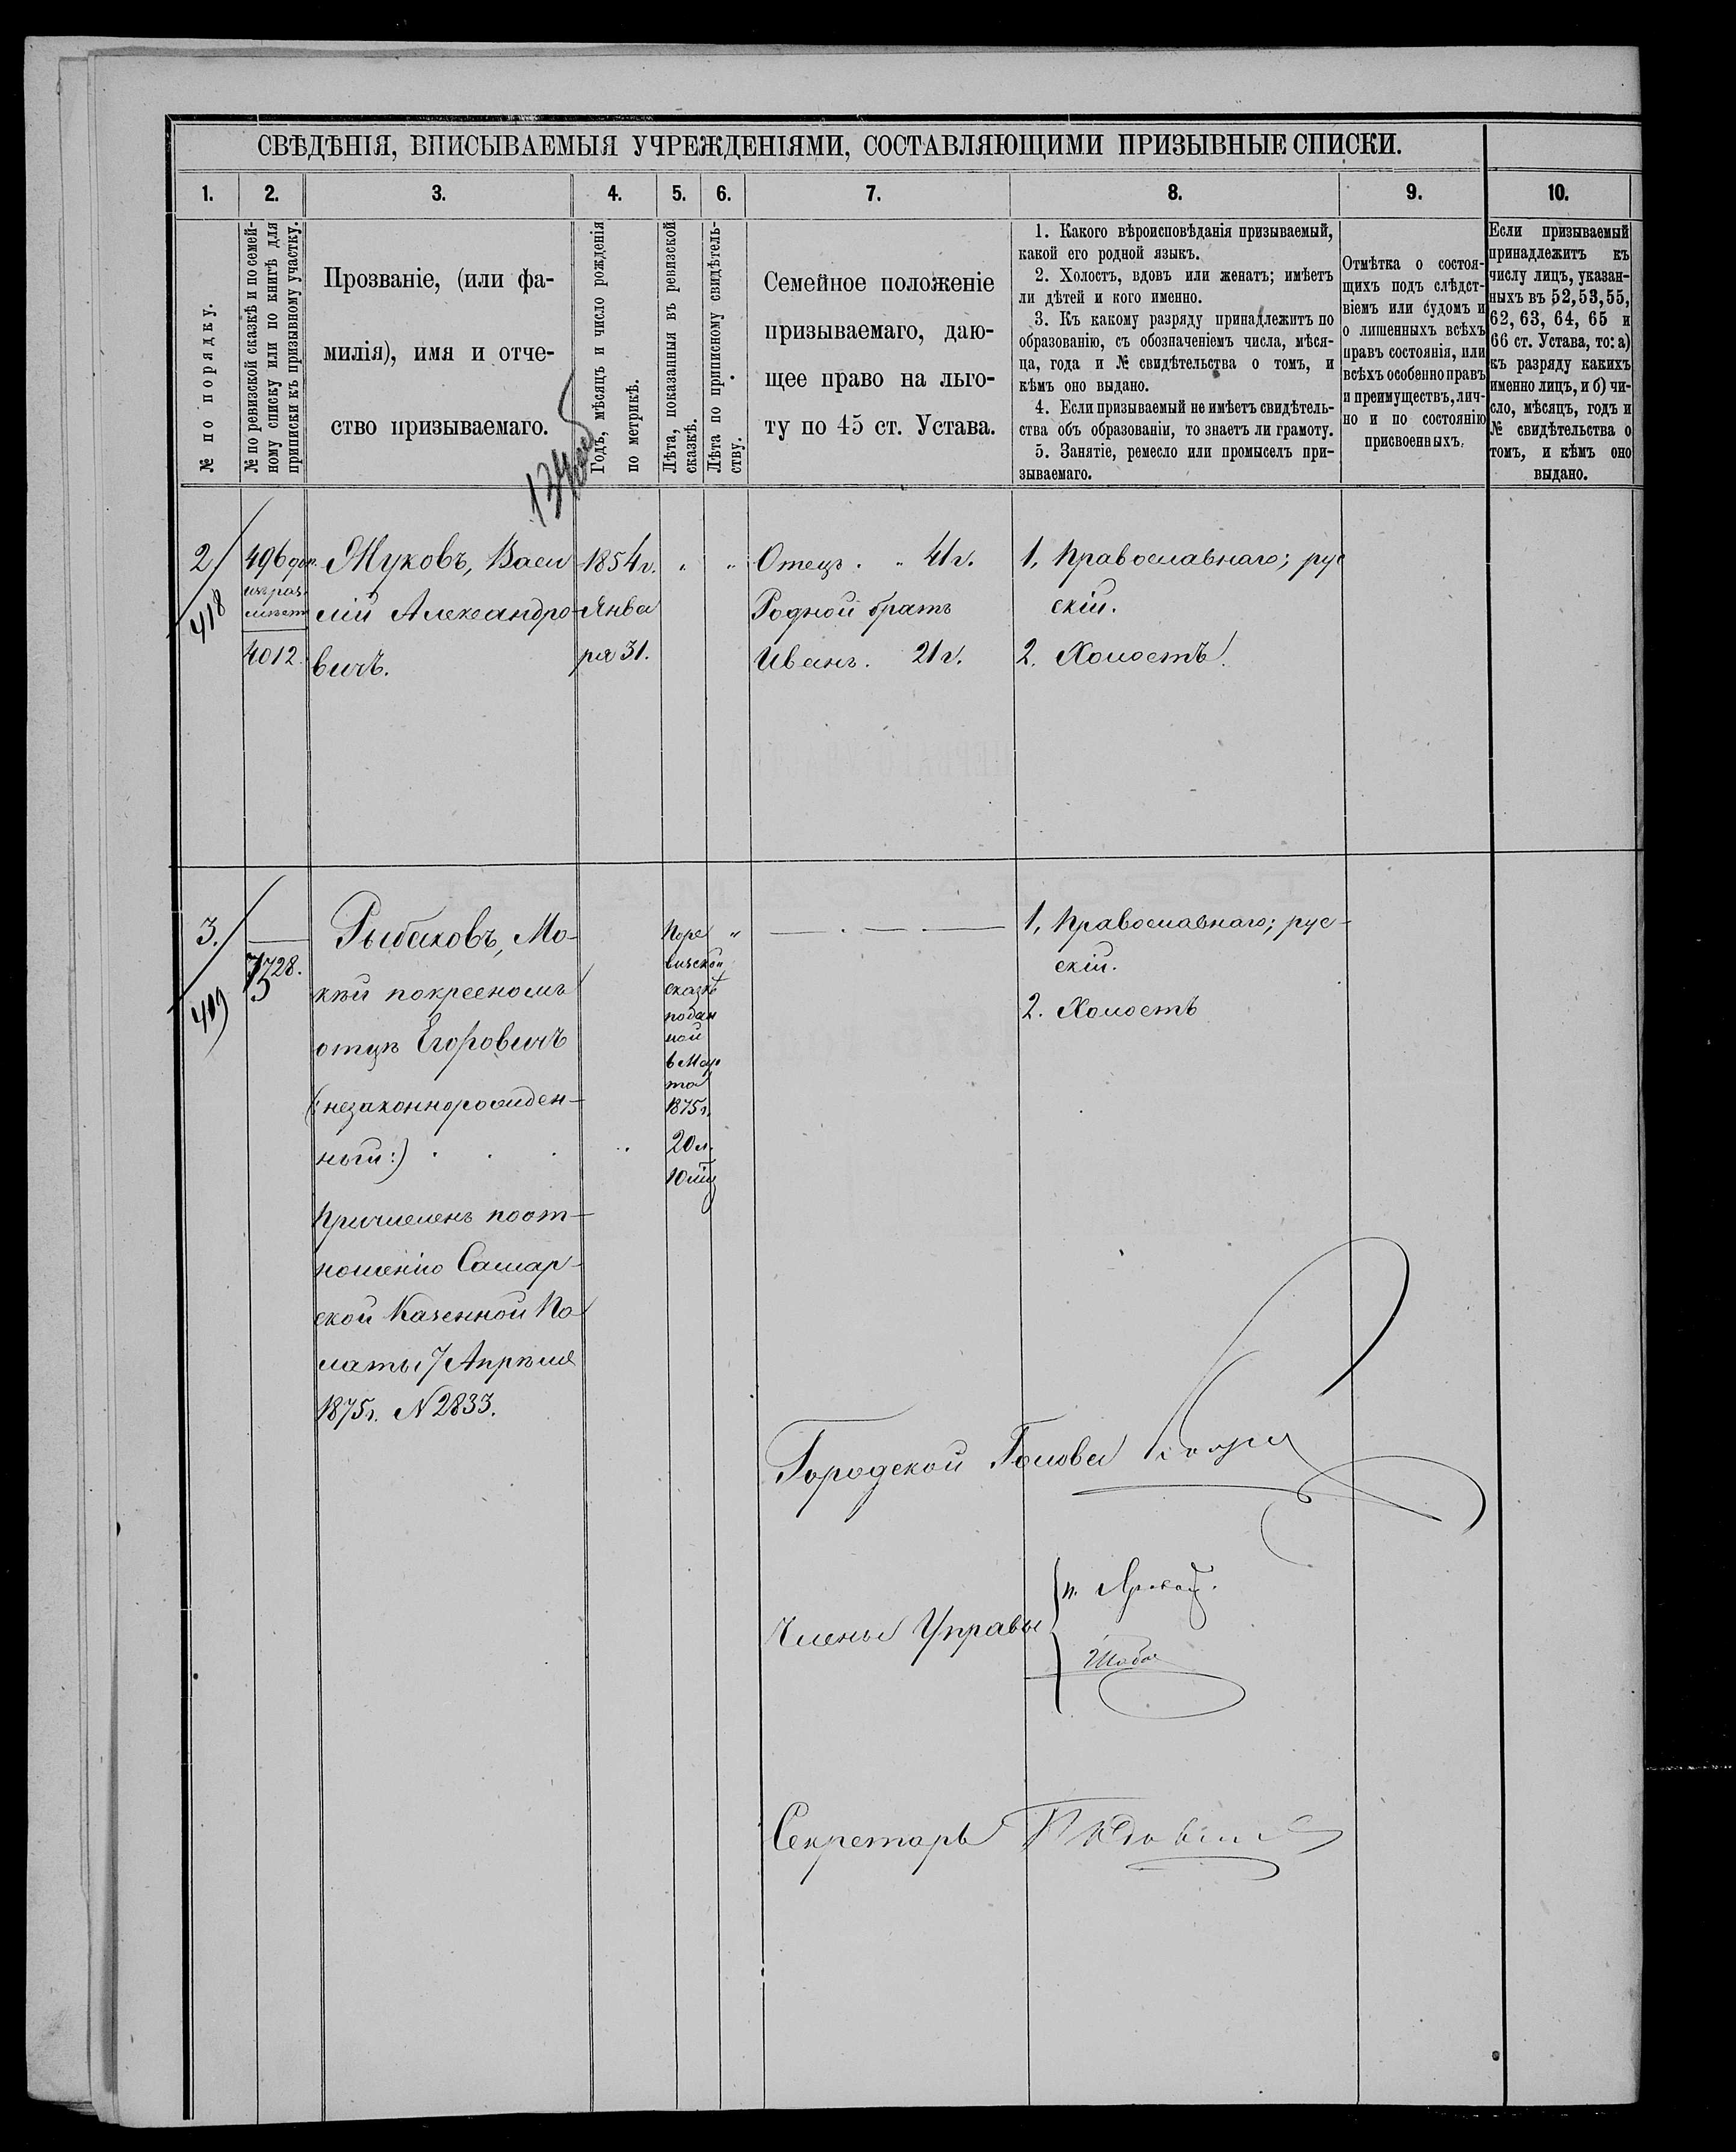 СВѢДѢНІЯ, ВПИСЫВАЕМЫЯ УЧРЕЖДЕНІЯМИ, СОСТАВЛЯЮЩИМИ ПРИЗЫВНЫЕ СПИСКИ.
1. 2. 3. 4. 5. 6. 7. 8. 9. 10.
№ по порядку.
№ по ревизской сказкѣ и по семей-
ному списку или по книгѣ для
приписки къ призывному участку.
Прозваніе, (или фа-
милія), имя и отче-
ство призываемаго.
Годъ, мѣсяцъ и число рожденія
по метрикѣ.
Лѣта, показанныя въ ревизской
сказкѣ.
Лѣта по приписному свидѣтель-
ству.
Семейное положеніе
призываемаго, даю-
щее право на льго-
ту по 45 ст. Устава.
1. Какого вѣроисповѣданія призываемый,
какой его родной языкъ.
2. Холостъ, вдовъ или женатъ; имѣетъ
ли дѣтей и кого именно.
3. Къ какому разряду принадлежитъ по
образованію, съ обозначеніемъ числа, мѣся-
ца, года и № свидѣтельства о томъ, и
кѣмъ оно выдано.
4. Если призываемый не имѣетъ свидѣтель-
ства объ образованіи, то знаетъ ли грамоту.
5. Занятіе, ремесло или промыселъ при-
зываемаго.
Отмѣтка о состоя-
щихъ подъ слѣдст-
віемъ или судомъ и
о лишенныхъ всѣхъ
правъ состоянія, или
всѣхъ особенно правъ
и преимуществъ, лич-
но и по состоянію
присвоенныхъ.
Если призываемый
принадлежитъ къ
числу лицъ, указан-
ныхъ въ 52, 53, 55,
62, 63, 64, 65 и
66 ст. Устава, то: а)
къ разряду какихъ
именно лицъ, и б) чи-
сло, мѣсяцъ, годъ и
№ свидѣтельства о
томъ, и кѣмъ оно
выдано.
2/
418
496
4012
Жуковъ, Васи
лій Александро-
вичъ.
1854 г.
Янва
ря 31.
" "
Отецъ . . 41 г.
Родной братъ
Иванъ. 21 г.
1, Православнаго; рус
скій.
2. Холостъ.
3./
419
7728.
Рыбаковъ, Мо-
кѣй по крестномъ
отцѣ Егоровичъ
(: незаконнорожден-
ный :) . . .
Причисленъ по от-
ношенію Самар-
ской Казенной Па
латы 7 Апрѣля
1875 г. N 2833.
"
По ре
визской
сказкѣ
подан
ной
в Мар
та
1875 г.
20 л.
10 мѣц
"
1, Православнаго; рус-
скій.
2. Холостъ
Городской Голова
Члены Управы
Секретарь